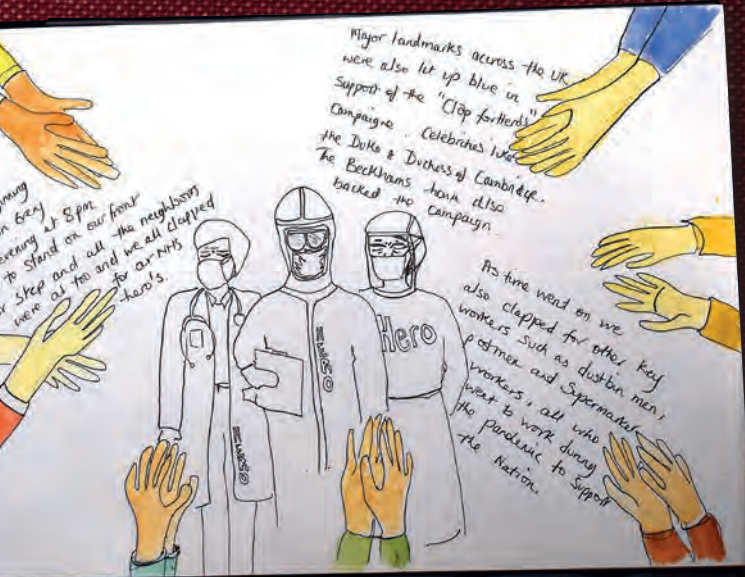 Major landmarks across the UK
were also lit up blue in
support of the "Clap for Herds"
Campaigne. Celebrites like
the Duke & Duchess of Cambridge.
The Beckhams have also
backed the campaign.
evening at 8pm
to stand on our front
step and all the neighbours
were at too and we all clapped
for our NHS
hero's.
As time went on we
also clapped for other key
workers such as dustbin men,
postmen and Supermarket
workers, all who
went to work during
the pandemic to Support
the Nation.
Hero